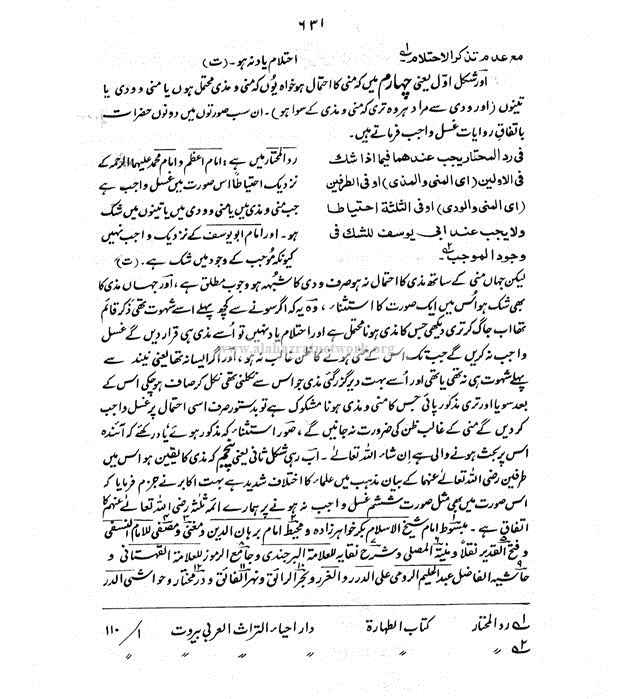 ٦٣١
مع عدم تذکر الاحتلام۔۱؎ احتلام یاد نہ ہو۔ (ت)
اور شکل اوّل یعنی چہارم میں کہ منی کا احتمال ہو خواہ یُوں کہ منی و مذی محتمل ہوں یا منی و ودی یا
تینوں (اور ودی سے مراد ہر وہ تری کہ منی و مذی کے سوا ہو)۔ ان سب صورتوں میں دونوں حضرات
باتفاقِ روایات غسل واجب فرماتے ہیں۔
فی رد المحتار یجب عندھما فیما اذا شك
فی الاولین (ای المنی والمذی) او فی الطرفین
(ای المنی والودی) او فی الثلثة احتیاطا
ولا یجب عند ابی یوسف للشك فی
وجود الموجب۔۲؎
رد المحتار میں ہے: امام اعظم و امام محمد علیہما الرحمہ کے
نزدیک احتیاطًا اس صورت میں غسل واجب ہے
جب منی و مذی میں یا منی و ودی میں یا تینوں میں شک
ہو۔ اور امام ابو یوسف کے نزدیک واجب نہیں
کیونکہ مُوجب کے وجود میں شک ہے۔ (ت)
لیکن جہاں منی کے ساتھ مذی کا احتمال نہ ہو صرف ودی کا شبہہ ہو وجوب مطلق ہے، اور جہاں مذی کا
بھی شک ہو اُس میں ایک صورت کا استثناء ہے، وہ یہ کہ اگر سونے سے کچھ پہلے اسے شہوت تھی ذکر قائم
تھا اب جاگ کر تری دیکھی جس کا مذی ہونا محتمل ہے اور احتلام یاد نہیں تو اُسے مذی ہی قرار دیں گے غسل
واجب نہ کریں گے جب تک اس کے منی ہونے کا ظن غالب نہ ہو، اور اگر ایسا نہ تھا یعنی نیند سے
پہلے شہوت ہی نہ تھی یا تھی اور اُسے بہت دیر گزر گئی مذی جو اس سے نکلنی تھی نکل کر صاف ہوچکی اس کے
بعد سویا اور تری مذکور پائی جس کا منی و مذی ہونا مشکوک ہے تو بدستور صرف اسی احتمال پر غسل واجب
کر دیں گے منی کے غالب ظن کی ضرورت نہ جانیں گے، صور استثناء کہ مذکور ہوئے یاد رکھئے کہ آئندہ
اس پر بحث ہونے والی ہے ان شاء اللہ تعالیٰ۔ اب رہی شکل ثانی یعنی پنجم کہ مذی کا یقین ہو اس میں
طرفین رضی اللہ تعالیٰ عنہما کے بیان مذہب میں علماء کا اختلاف شدید ہے بہت اکابر نے جزم فرمایا کہ
اس صورت میں بھی مثل صورت ششم غسل واجب نہ ہونے پر ہمارے ائمہ ثلٰثہ رضی اللہ تعالیٰ عنہم کا
اتفاق ہے۔ مبسوط امام شیخ الاسلام بکر خواہر زادہ و محیط امام برہان الدین و مغنی و مصفی للامام النسفی
و فتح القدیر نقلاً و منیۃ المصلی و شرح نقایہ للعلامۃ البرجندی و جامع الرموز للعلامۃ القہستانی و
حاشیہ الفاضل عبد الحلیم الرومی علی الدرر والغرر و بحر الرائق و نہر الفائق و در مختار و حواشی الدر
۱؎ رد المحتار کتاب الطہارة دار احیاء التراث العربی بیروت ۱/ ۱۱۰
۲؎ ″ ″ ″ ″ ″
www.alahazratnetwork.org